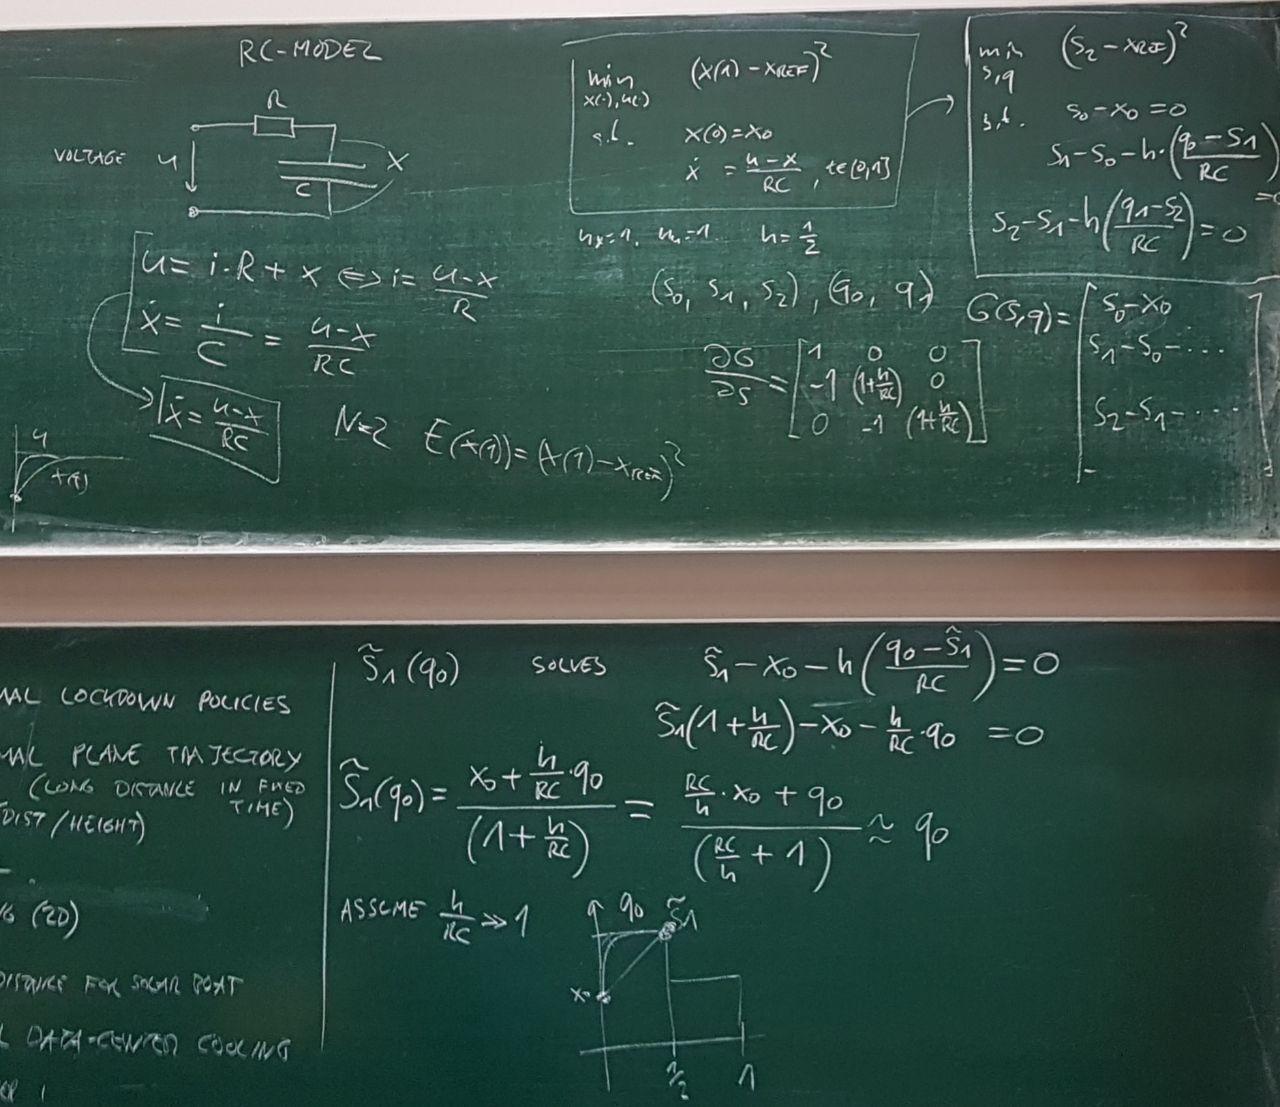 RC-MODEL
R
VOLTAGE u
C
X
u = i·R + x ⟺ i = (u-x)/R
ẋ = i/C = (u-x)/RC
ẋ = (u-x)/RC
u
x(t)
N=2 E(x(1)) = (x(1) - x_REF)²
min (x(1) - x_REF)²
x(·), u(·)
s.t. x(0) = x0
ẋ = (u-x)/RC, t∈[0,1]
n_x=1, n_u=1 h = 1/2
(s0, s1, s2), (q0, q1)
∂G/∂s = [1 0 0
-1 (1+h/RC) 0
0 -1 (1+h/RC)]
min (s2 - x_REF)²
s,q
s.t. s0 - x0 = 0
s1 - s0 - h·((q0 - s1)/RC) = 0
s2 - s1 - h((q1 - s2)/RC) = 0
G(s,q) = [s0 - x0
s1 - s0 - ...
s2 - s1 - ....]
MAL LOCKDOWN POLICIES
MAL PLANE TRAJECTORY
(LONG DISTANCE IN FIXED
TIME)
DIST/HEIGHT)
G (2D)
DISTANCE FOR SOLAR BOAT
L DATA-CENTER COOLING
s̃1(q0) SOLVES s̃1 - x0 - h((q0 - s̃1)/RC) = 0
s̃1(1 + h/RC) - x0 - h/RC·q0 = 0
s̃1(q0) = (x0 + h/RC·q0)/(1 + h/RC) = (RC/h·x0 + q0)/(RC/h + 1) ≈ q0
ASSUME h/RC ≫ 1
q0 s̃1
x0
1/2 1